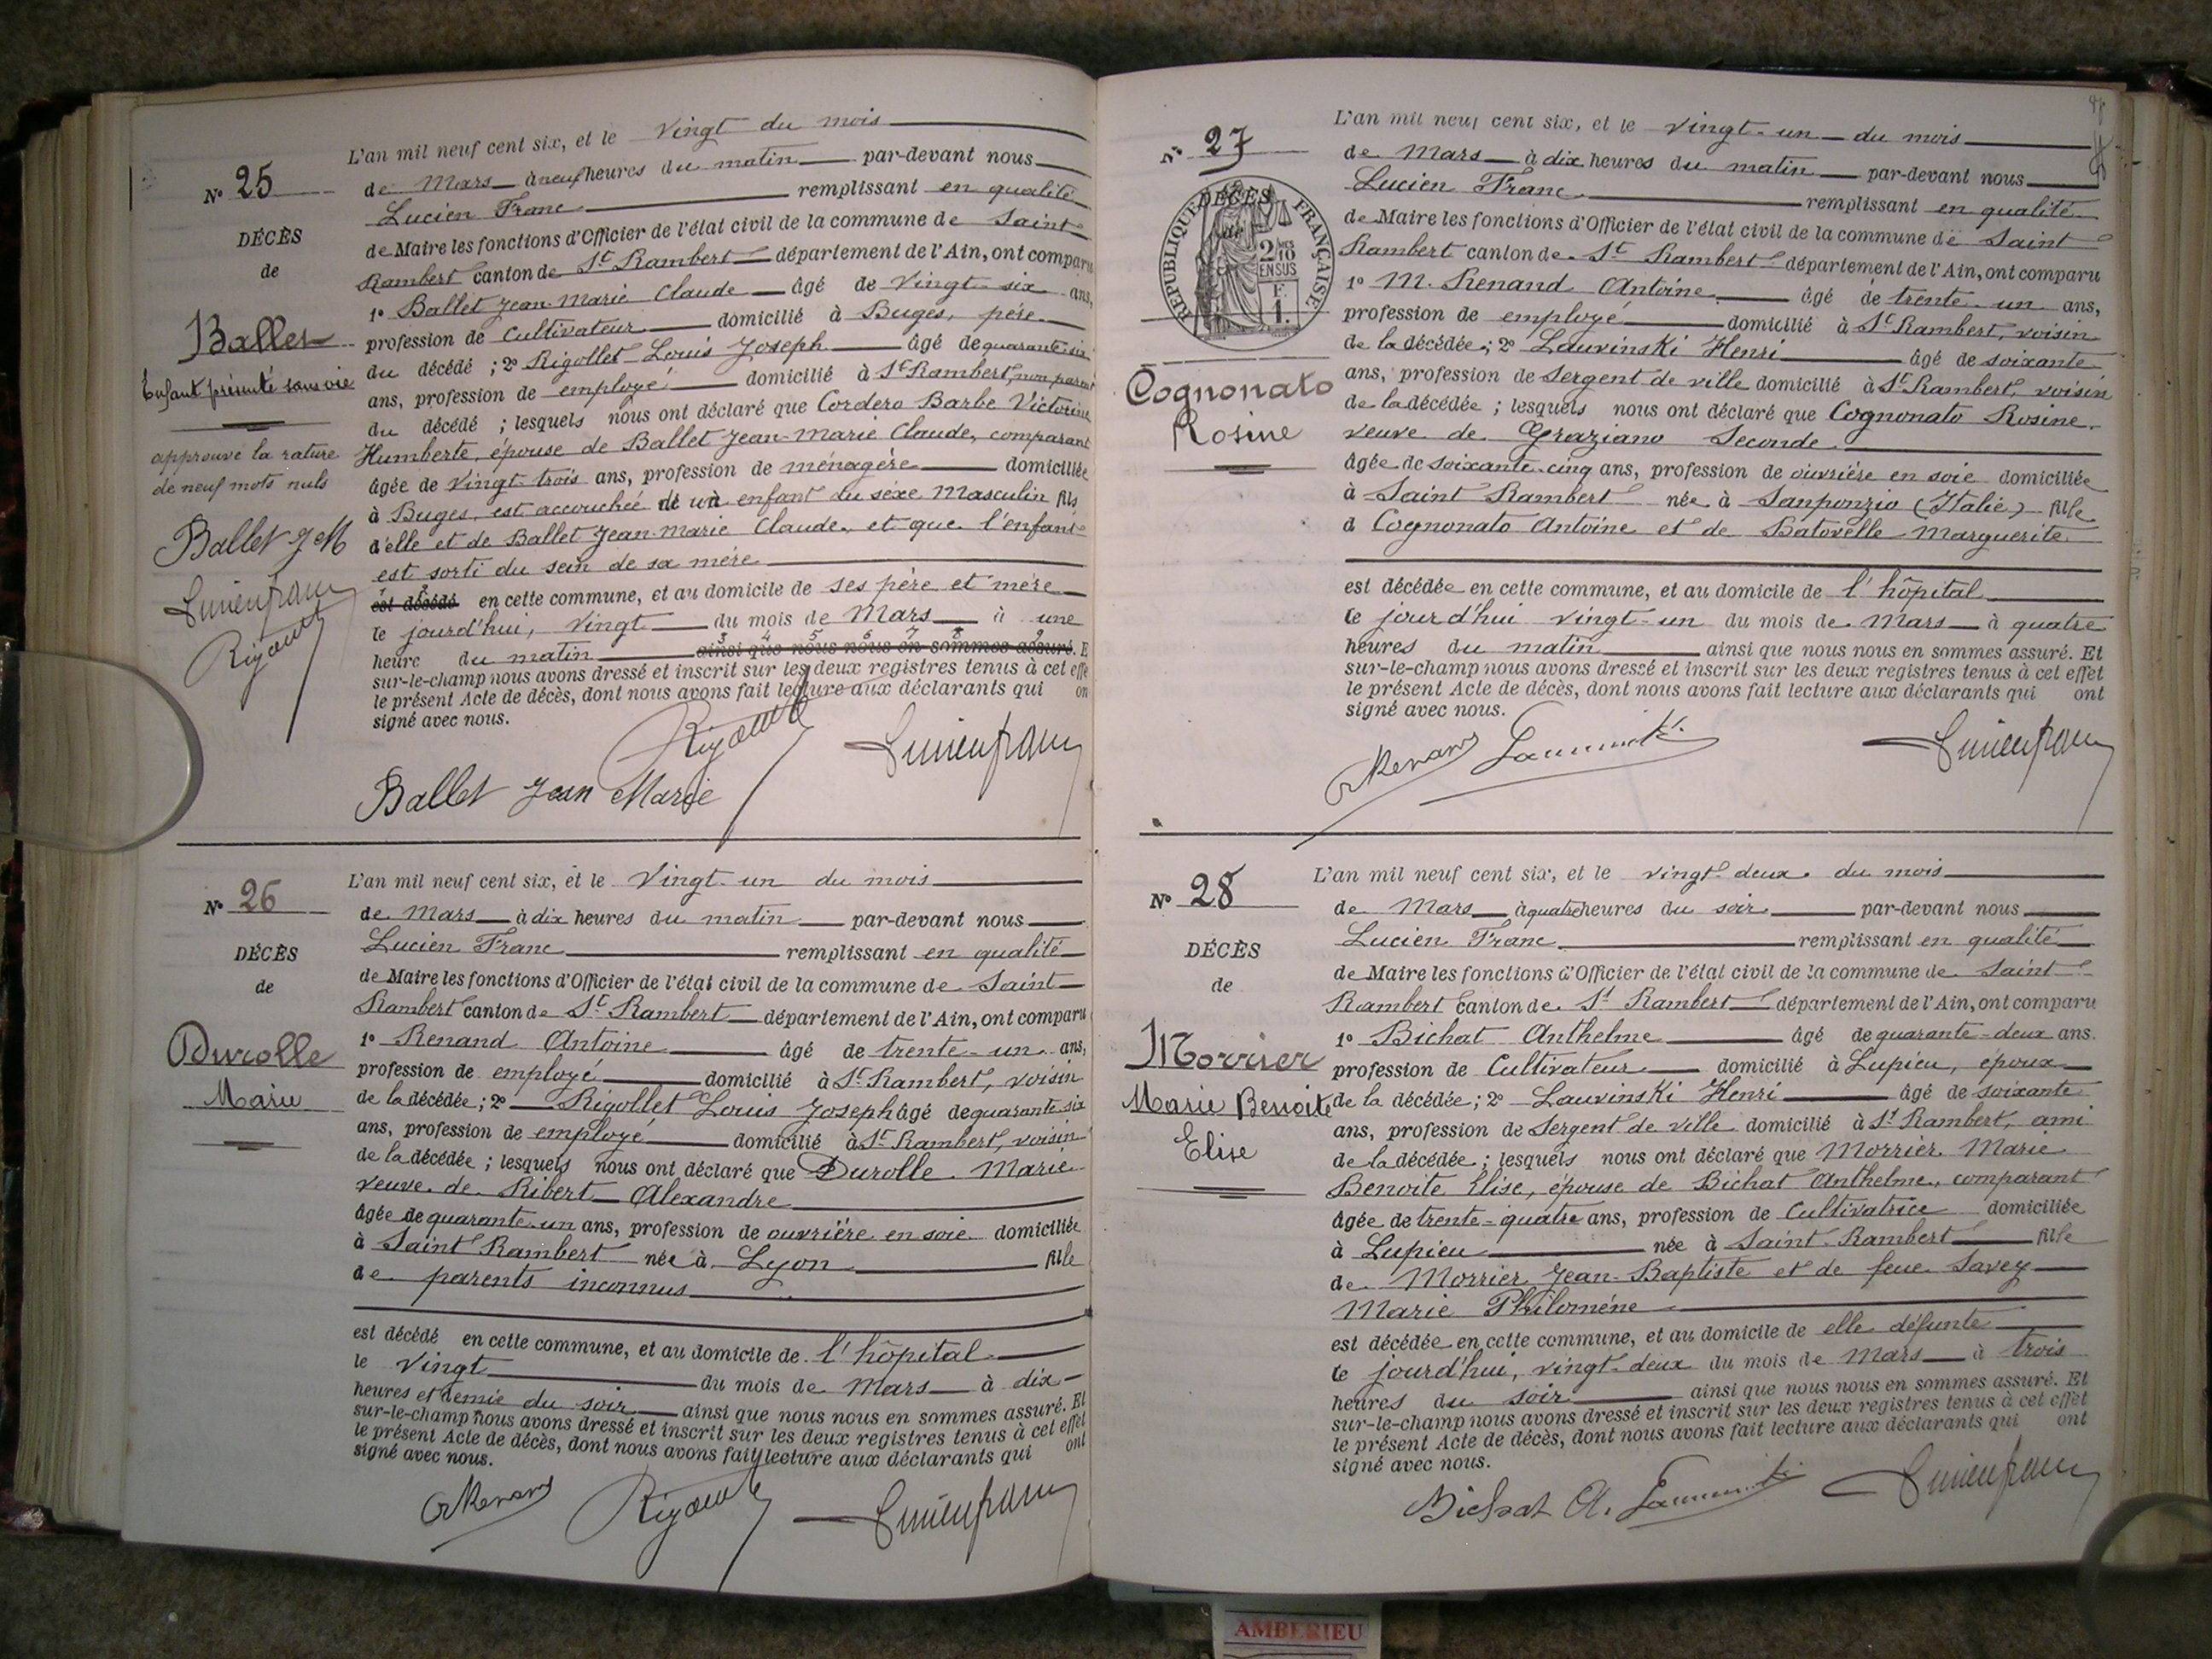 N° 25
DÉCÈS
de
Ballet
Enfant présenté sans vie
approuvé la rature
de neuf mots nuls
Ballet J M
L'an mil neuf cent six, et le vingt du mois
de Mars à neuf heures du matin par-devant nous
Lucien Franc remplissant en qualité
de Maire les fonctions d'Officier de l'état civil de la commune de Saint
Rambert canton de St Rambert département de l'Ain, ont comparu
1° Ballet Jean-Marie Claude âgé de vingt-six ans,
profession de cultivateur domicilié à Buges, père
du décédé ; 2° Rigollet Louis Joseph âgé de quarante-six
ans, profession de employé domicilié à St Rambert, non parent
du décédé ; lesquels nous ont déclaré que Cordero Barbe Victorine
Humberte, épouse de Ballet Jean-Marie Claude, comparant
âgée de vingt-trois ans, profession de ménagère domiciliée
à Buges, est accouchée d'un enfant du sexe Masculin fils
d'elle et de Ballet Jean-Marie Claude, et que l'enfant
est sorti du sein de sa mère
est décédé en cette commune, et au domicile de ses père et mère
le jourd'hui, vingt du mois de Mars à une
heure du matin ainsi que nous nous en sommes assuré. E
sur-le-champ nous avons dressé et inscrit sur les deux registres tenus à cet effe
le présent Acte de décès, dont nous avons fait lecture aux déclarants qui on
signé avec nous.
Ballet Jean Marie
N° 26
DÉCÈS
de
Durolle
Marie
L'an mil neuf cent six, et le vingt-un du mois
de Mars à dix heures du matin par-devant nous
Lucien Franc remplissant en qualité
de Maire les fonctions d'Officier de l'état civil de la commune de Saint
Rambert canton de St Rambert département de l'Ain, ont comparu
1° Renand Antoine âgé de trente-un ans,
profession de employé domicilié à St Rambert, voisin
de la décédée ; 2° Rigollet Louis Joseph âgé de quarante-six
ans, profession de employé domicilié à St Rambert, voisin
de la décédée ; lesquels nous ont déclaré que Durolle Marie
veuve de Ribert Alexandre
âgée de quarante-un ans, profession de ouvrière en soie domiciliée
à Saint Rambert née à Lyon fille
de parents inconnus
est décédé en cette commune, et au domicile de l'hôpital
le vingt du mois de Mars à dix
heures et demie du soir ainsi que nous nous en sommes assuré. Et
sur-le-champ nous avons dressé et inscrit sur les deux registres tenus à cet effet
le présent Acte de décès, dont nous avons fait lecture aux déclarants qui ont
signé avec nous.
N° 27
DÉCÈS
de
RÉPUBLIQUE FRANÇAISE
2/10
EN SUS
F.
1.
Cognonato
Rosine
L'an mil neuf cent six, et le vingt-un du mois
de Mars à dix heures du matin par-devant nous
Lucien Franc remplissant en qualité
de Maire les fonctions d'Officier de l'état civil de la commune de Saint
Rambert canton de St Rambert département de l'Ain, ont comparu
1° M. Renand Antoine âgé de trente-un ans,
profession de employé domicilié à St Rambert, voisin
de la décédée ; 2° Lauvinski Henri âgé de soixante
ans, profession de Sergent de ville domicilié à St Rambert, voisin
de la décédée ; lesquels nous ont déclaré que Cognonato Rosine
veuve de Graziano Seconde
âgée de soixante-cinq ans, profession de ouvrière en soie domiciliée
à Saint Rambert née à Sanponzio (Italie) fille
d Cognonato Antoine et de Batovelle Marguerite
est décédée en cette commune, et au domicile de l'hôpital
le jourd'hui vingt-un du mois de Mars à quatre
heures du matin ainsi que nous nous en sommes assuré. Et
sur-le-champ nous avons dressé et inscrit sur les deux registres tenus à cet effet
le présent Acte de décès, dont nous avons fait lecture aux déclarants qui ont
signé avec nous.
N° 28
DÉCÈS
de
Morrier
Marie Benoite
Elise
L'an mil neuf cent six, et le vingt-deux du mois
de Mars à quatre heures du soir par-devant nous
Lucien Franc remplissant en qualité
de Maire les fonctions d'Officier de l'état civil de la commune de Saint
Rambert canton de St Rambert département de l'Ain, ont comparu
1° Bichat Anthelme âgé de quarante-deux ans.
profession de Cultivateur domicilié à Lupieu, époux
de la décédée ; 2° Lauvinski Henri âgé de soixante
ans, profession de Sergent de ville domicilié à St Rambert, ami
de la décédée ; lesquels nous ont déclaré que Morrier Marie
Benoite Elise, épouse de Bichat Anthelme, comparant
âgée de trente-quatre ans, profession de Cultivatrice domiciliée
à Lupieu née à Saint-Rambert fille
de Morrier Jean-Baptiste et de feue Savey
Marie Philomène
est décédée en cette commune, et au domicile de elle défunte
le jourd'hui, vingt-deux du mois de Mars à trois
heures du soir ainsi que nous nous en sommes assuré. Et
sur-le-champ nous avons dressé et inscrit sur les deux registres tenus à cet effet
le présent Acte de décès, dont nous avons fait lecture aux déclarants qui ont
signé avec nous.
Bichat A.
AMBERIEU